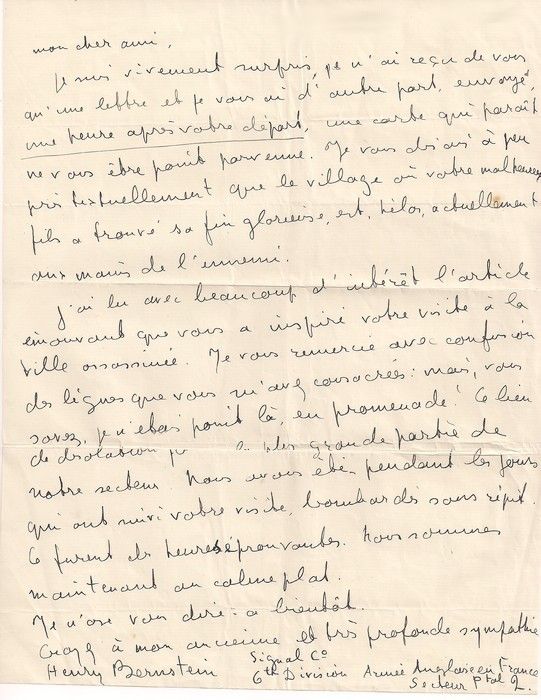 mon cher ami,
Je suis vivement surpris, je n'ai reçu de vous
qu'une lettre et je vous ai d'autre part, envoyé,
une heure après votre départ, une carte qui paraît
ne vous être point parvenue. Je vous disais à peu
près textuellement que le village où votre malheureux
fils a trouvé sa fin glorieuse, est, hélas, actuellement
aux mains de l'ennemi.
J'ai lu avec beaucoup d'intérêt l'article
émouvant que vous a inspiré votre visite à la
ville assassinée. Je vous remercie avec confusion
des lignes que vous m'avez consacrées : mais, vous
savez, je n'étais point là, en promenade ! Ce lieu
de désolation la plus grande partie de
notre secteur. Nous avons été, pendant les jours
qui ont suivi votre visite, bombardés sans répit.
Ce furent des heures éprouvantes. Nous sommes
maintenant au calme plat.
Je n'ose vous dire : à bientôt.
Croyez à mon ancienne et très profonde sympathie
Henry Bernstein Signal Co
6th Division Armée Anglaise en France
Secteur Ptal 2.